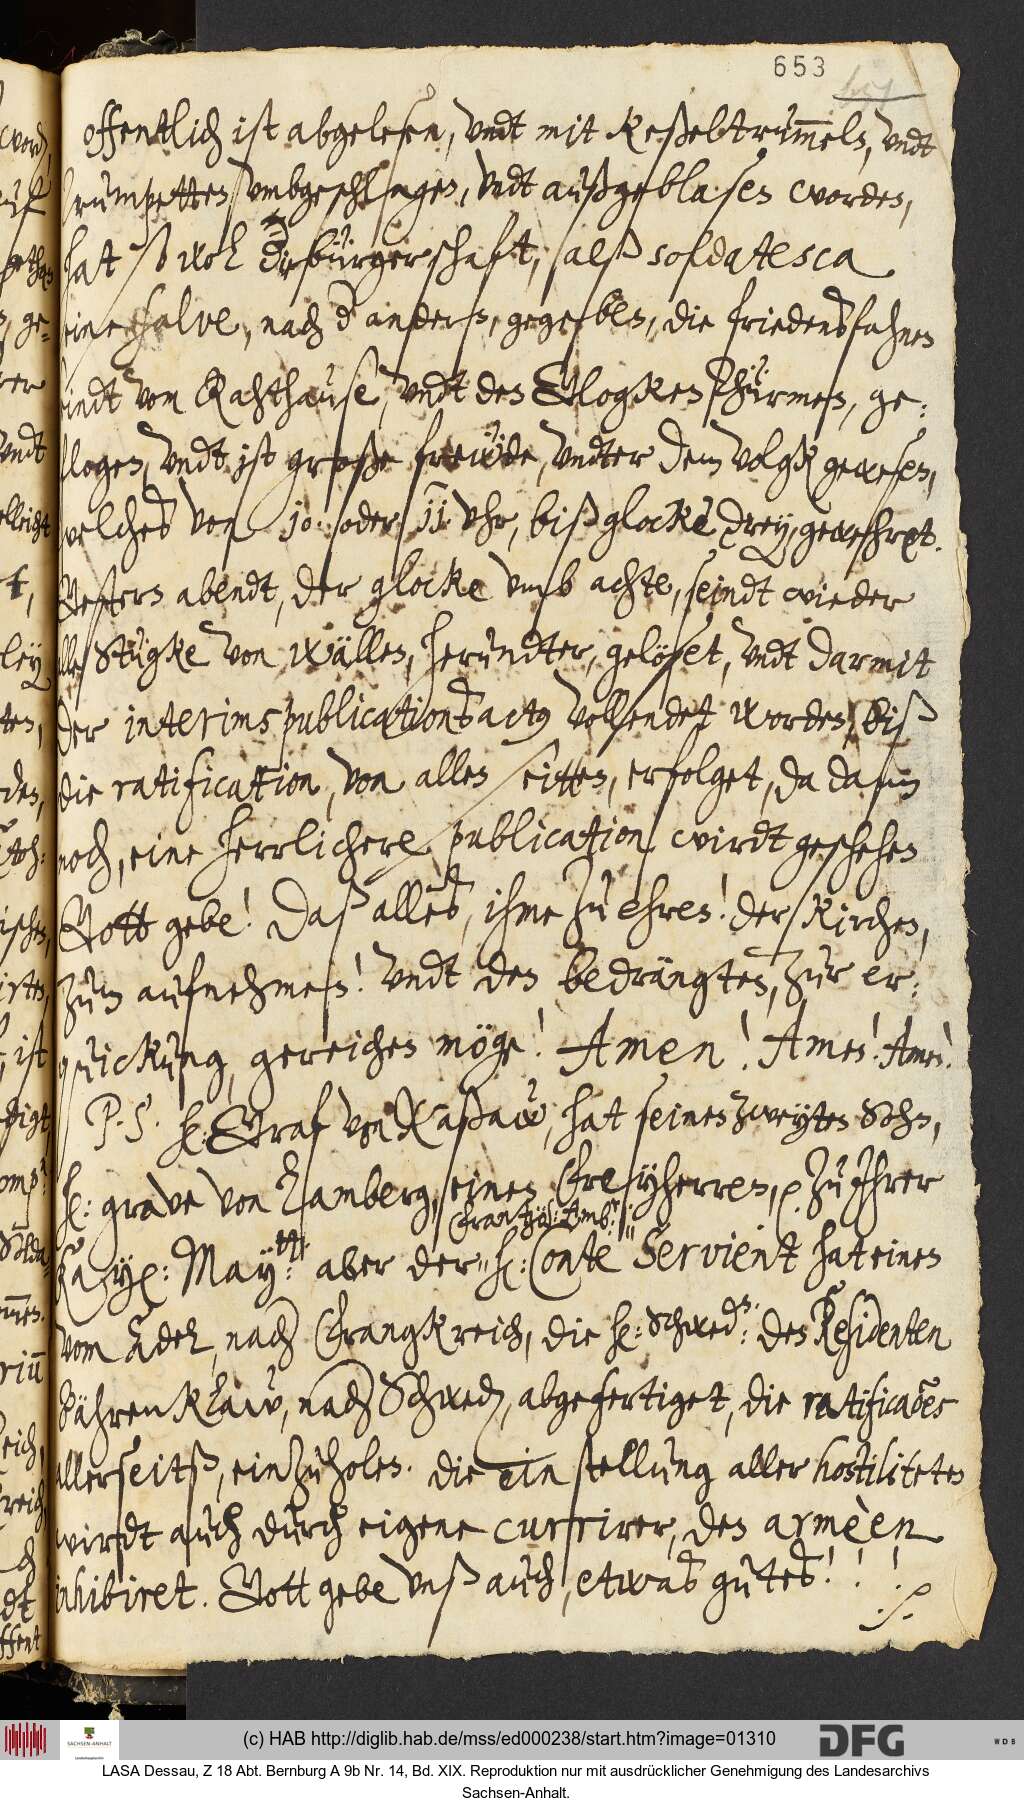 653
offentlich ist abgelesen, vndt mit Keßeltrum̅eln, vndt
trumpetten vmbgeschlagen, vndt außgeblasen worden,
hat so wol die bürgerschaft, alß soldatesca
eine salve, nach der andern, gegeben, die friedensfahnen
seindt vom Rahthause, vndt den Glogken Thürmen, ge:
flogen, vndt ist große frewde, vndter dem volgk gewesen,
welches von 10: oder 11: vhr, biß glocke drey, gewehret.
Gestern abendt, der glocke vmb achte, seindt wieder
alle Stügke von wällen, herundter, gelöset, vndt darmit
der interimspublicationsactus vollendet worden, biß
die ratification, von allen seitten, erfolget, da dann
noch, eine herrlichere publication wirdt geschehen
Gott gebe! Daß alles, ihme zu ehren! der Kirchen,
zum aufnehmen! vndt den bedrängten, zur er:
quickung, gereichen möge! Amen! Amen! Amen!
P. S. H: Graf von Naßaw, hat seinen zweyten Sohn,
H: grave von Lamberg, einen Freyherren, zu Ihrer
Kayl: May:tt: aber der H: Frantzös: Amb: Conte Servient hat einen
vom Adel, nach Frangkreich, die H: Schwed: den Residenten
Bährenklaw, nach Schweden, abgefertiget, die ratificaões
allerseitß, einzuholen. die einstellung aller hostiliteten
wirdt auch durch eigene currirer, den armèen
inhibiret. Gott gebe vnß auch, etwas gutes! ! !
(c) HAB http://diglib.hab.de/mss/ed000238/start.htm?image=01310
SACHSEN-ANHALT
DFG
WDB
LASA Dessau, Z 18 Abt. Bernburg A 9b Nr. 14, Bd. XIX. Reproduktion nur mit ausdrücklicher Genehmigung des Landesarchivs
Sachsen-Anhalt.